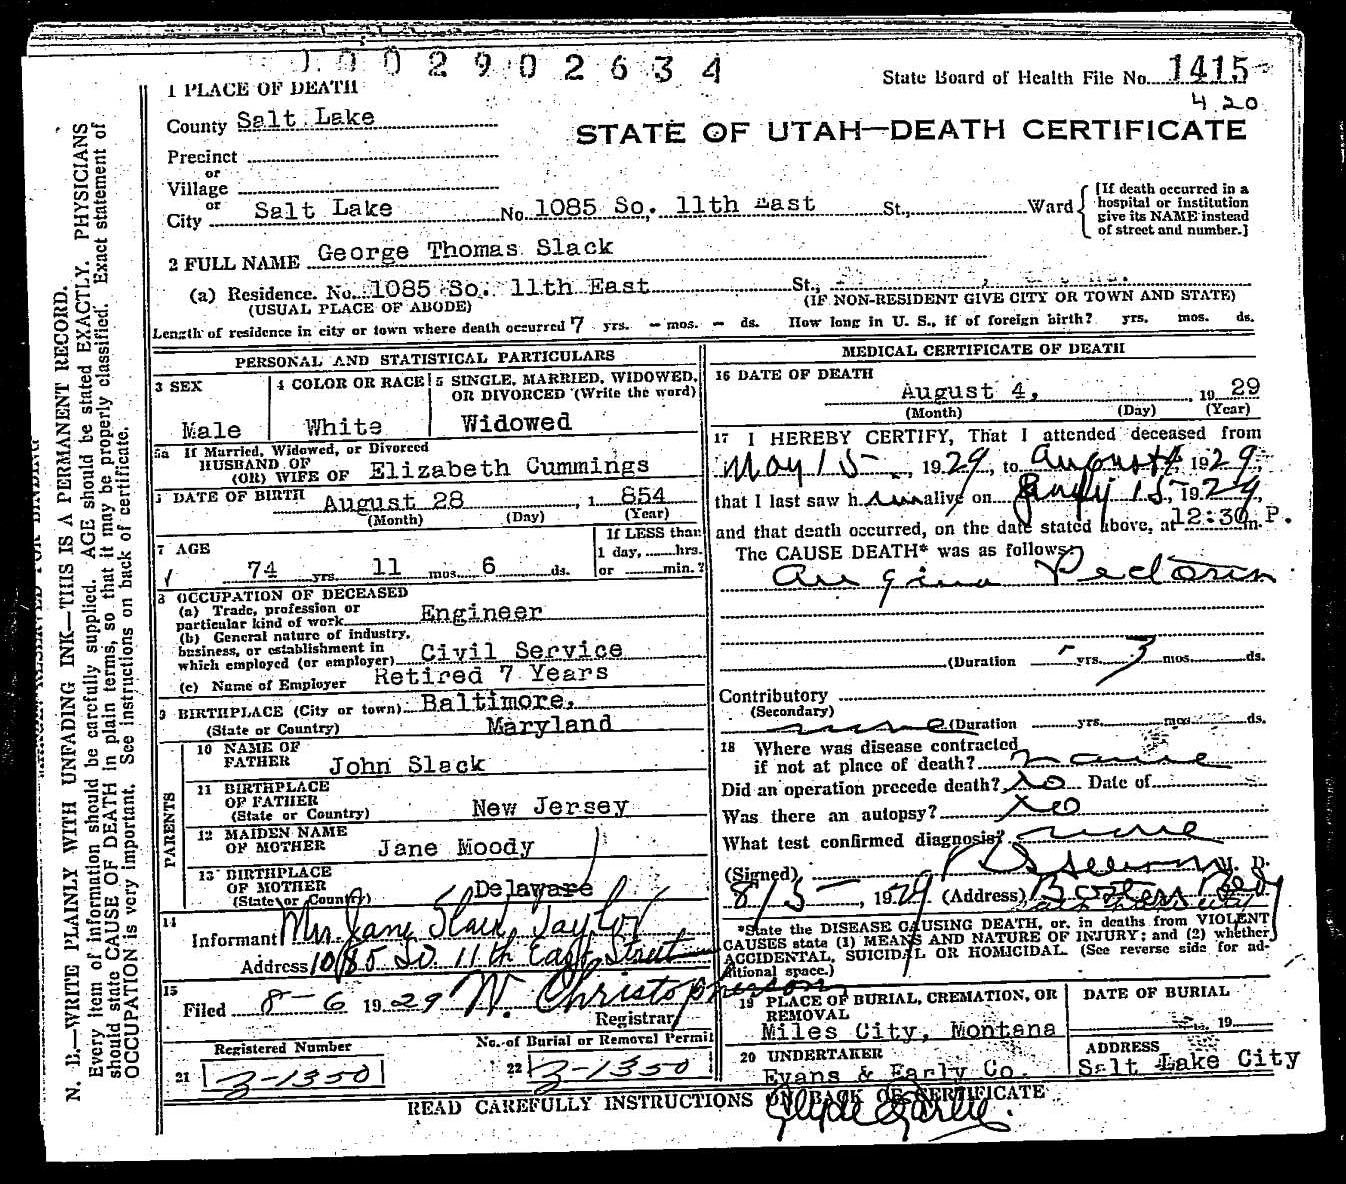 1002902634
State Board of Health File No. 1415
420
1 PLACE OF DEATH
STATE OF UTAH—DEATH CERTIFICATE
County Salt Lake
Precinct
or
Village
or
City Salt Lake No. 1085 So. 11th East St., Ward
[If death occurred in a
hospital or institution
give its NAME instead
of street and number.]
2 FULL NAME George Thomas Slack
(a) Residence. No. 1085 So. 11th East St.,
(USUAL PLACE OF ABODE) (IF NON-RESIDENT GIVE CITY OR TOWN AND STATE)
Length of residence in city or town where death occurred 7 yrs. - mos. - ds. How long in U. S., if of foreign birth? yrs. mos. ds.
PERSONAL AND STATISTICAL PARTICULARS
3 SEX
Male
4 COLOR OR RACE
White
5 SINGLE, MARRIED, WIDOWED,
OR DIVORCED (Write the word)
Widowed
5a If Married, Widowed, or Divorced
HUSBAND OF
(OR) WIFE OF Elizabeth Cummings
DATE OF BIRTH August 28 , 1 854
(Month) (Day) (Year)
7 AGE
74 yrs. 11 mos. 6 ds.
If LESS than
1 day, hrs.
or min.?
8 OCCUPATION OF DECEASED
(a) Trade, profession or
particular kind of work Engineer
(b) General nature of industry,
business, or establishment in
which employed (or employer) Civil Service
(c) Name of Employer Retired 7 Years
9 BIRTHPLACE (City or town) Baltimore,
(State or Country) Maryland
PARENTS
10 NAME OF
FATHER John Slack
11 BIRTHPLACE
OF FATHER
(State or Country) New Jersey
12 MAIDEN NAME
OF MOTHER Jane Moody
13 BIRTHPLACE
OF MOTHER
(State or Country) Delaware
14
Informant Mrs Jane Slack Taylor
Address 1085 So 11th East Street
15
Filed 8-6 1929 W. Christopherson
Registrar
Registered Number
21 3-1350
No. of Burial or Removal Permit
22 3-1350
MEDICAL CERTIFICATE OF DEATH
16 DATE OF DEATH
August 4, , 19 29
(Month) (Day) (Year)
17 I HEREBY CERTIFY, That I attended deceased from
May 15 , 1929, to August 4, 1929,
that I last saw him alive on July 15, 1929,
and that death occurred, on the date stated above, at 12:30 P. m.
The CAUSE DEATH* was as follows:
Angina Pectoris
(Duration - yrs. 3 mos. ds.
Contributory
(Secondary)
none (Duration yrs. mos. ds.
18 Where was disease contracted
if not at place of death?
Did an operation precede death? No Date of
Was there an autopsy? No
What test confirmed diagnosis? none
(Signed) M. D.
8/5 , 1929 (Address)
*State the DISEASE CAUSING DEATH, or, in deaths from VIOLENT
CAUSES state (1) MEANS AND NATURE OF INJURY; and (2) whether
ACCIDENTAL, SUICIDAL OR HOMICIDAL. (See reverse side for ad-
ditional space.)
19 PLACE OF BURIAL, CREMATION, OR
REMOVAL
Miles City, Montana
DATE OF BURIAL
, 19
20 UNDERTAKER
Evans & Early Co.
ADDRESS
Salt Lake City
READ CAREFULLY INSTRUCTIONS ON BACK OF CERTIFICATE
N. B.—WRITE PLAINLY WITH UNFADING INK—THIS IS A PERMANENT RECORD.
Every item of information should be carefully supplied. AGE should be stated EXACTLY. PHYSICIANS
should state CAUSE OF DEATH in plain terms, so that it may be properly classified. Exact statement of
OCCUPATION is very important. See instructions on back of certificate.